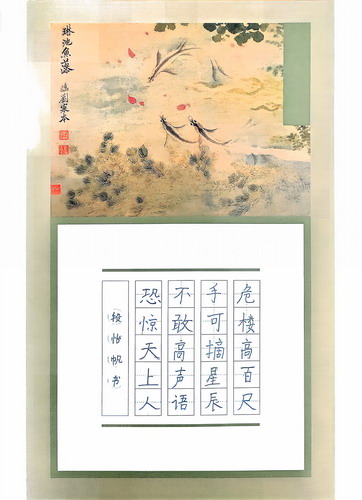 琳池魚藻
危楼高百尺
手可摘星辰
不敢高声语
恐惊天上人
段怡帆书